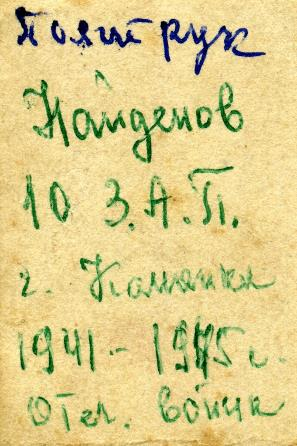 Политрук
Найденов
10 З.А.П.
г. Каменка
1941 - 1945 г.
Отеч. война